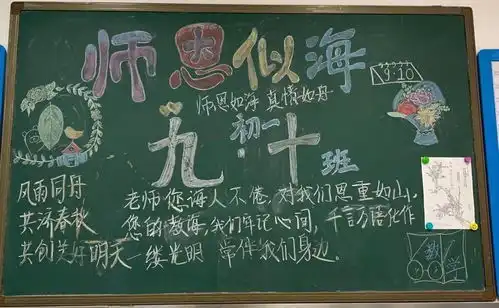 师恩似海
9.10
师恩如海 真情如丹
初一
九 十 班
风雨同舟
共济春秋
共创美好明天
老师您诲人不倦,对我们恩重如山,
您的教诲,我们牢记心间,千言万语化作
一缕光明 常伴我们身边。
数学